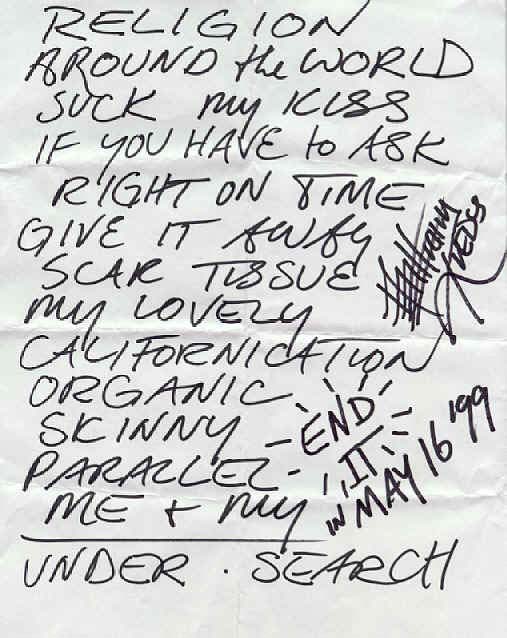 RELIGION
AROUND the WORLD
SUCK my KISS
IF YOU HAVE to ASK
RIGHT ON TIME
GIVE IT AWAY
SCAR TISSUE
my LOVELY
CALIFORNICATION
ORGANIC
SKINNY
PARALLEL
ME + my
UNDER . SEARCH
END
IT
IN MAY 16 '99